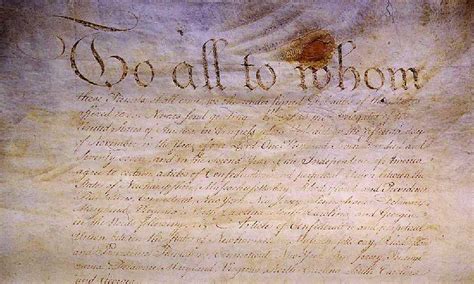 To all to whom
these Presents shall come, we the under signed Delegates of the States
affixed to our Names send greeting. Whereas the Delegates of the
United States of America in Congress assembled did on the fifteenth day
of November in the Year of our Lord One Thousand Seven Hundred and
Seventy seven, and in the Second Year of the Independence of America
agree to certain articles of Confederation and perpetual Union between the
States of Newhampshire, Massachusetts-bay, Rhodeisland and Providence
Connecticut, New York, New Jersey, Pennsylvania, Delaware,
Maryland, Virginia, North-Carolina, South-Carolina and Georgia
in the Words following, of Confederation and perpetual
Union between the States of Newhampshire,
and Providence Plantations, Connecticut, New-York, New-Jersey, Pennsyl-
vania, Delaware, Maryland, Virginia, North-Carolina, South-Carolina
and Georgia